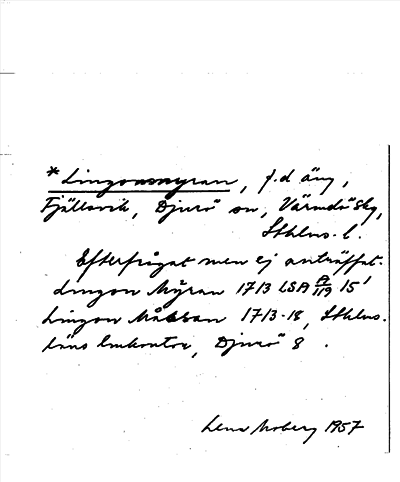 *Lingonmyran, f.d äng,
Fjällsvik, Djurö sn, Värmdö skg,
Sthlms. l.
Efterfrågat men ej anträffat.
Lingon Myran 1713 LSA A/119 15'
Lingon Måssan 1713-18, Sthlms.
läns lmkontor, Djurö 8.
Lena Moberg 1957